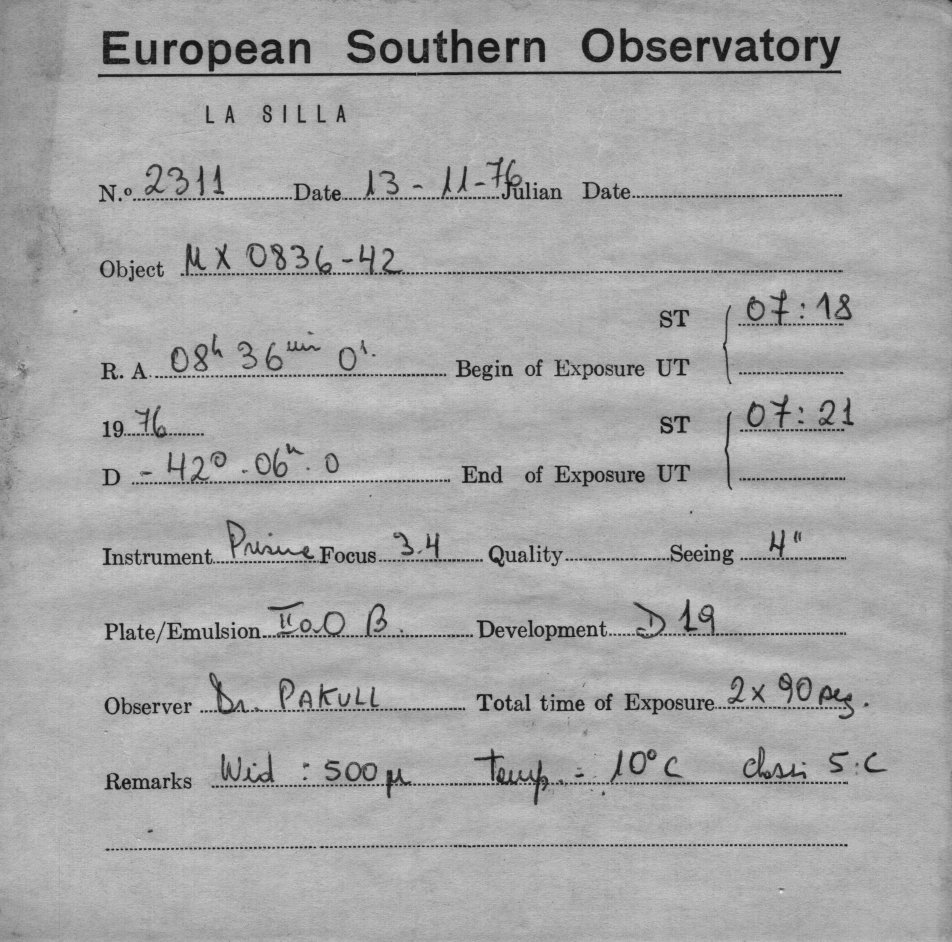 European Southern Observatory
LA SILLA
N.º 2311 Date 13 - 11 - 76 Julian Date
Object MX 0836-42
ST 07:18
R. A 08h 36min 0s. Begin of Exposure UT
1976 ST 07:21
D - 42º . 06m . 0 End of Exposure UT
Instrument Prime Focus 3.4 Quality Seeing 4"
Plate/Emulsion IIaO B. Development D 19
Observer Dr. PAKULL Total time of Exposure 2 x 90 seg.
Remarks Wid : 500 µ Temp. = 10°C 5:C